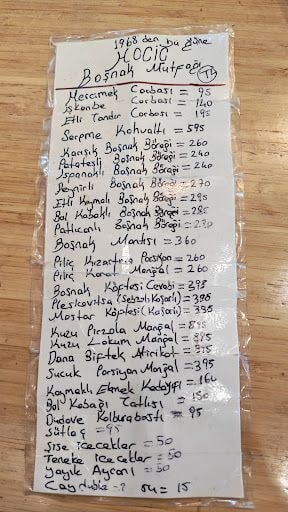 1968 den bu güne
HOCİC
Boşnak Mutfağı TL
Mercimek Çorbası = 95
İşkenbe Çorbası = 140
Etli Tandır Çorbası = 195
Serpme Kahvaltı = 595
Karışık Boşnak Böreği = 260
Patatesli Boşnak Böreği = 240
Ispanaklı Boşnak Böreği = 240
Peynirli Boşnak Böreği = 270
Etli Kıymalı Boşnak Böreği = 295
Bal Kabaklı Boşnak Böreği = 285
Patlıcanlı Boşnak Böreği =
Boşnak Mantısı = 360
Piliç Kızartma Porsiyon = 260
Piliç Kanat Mangal = 260
Boşnak Köftesi Cevabi = 395
Pleskavitsa (Sebzeli Kaşarlı) = 395
Mostar Köftesi (Kaşarlı) = 395
Kuzu Pirzola Mangal =
Kuzu Lokum Mangal =
Dana Biftek Atirikot =
Sucuk Porsiyon Mangal = 395
Kaymaklı Ekmek Kadayıfı = 160
Bal Kabağı Tatlısı = 150
Dudove Kolburabastı = 95
Sütlaç = 95
Şişe içecekler = 50
Teneke içecekler = 50
Yayık Ayranı = 50
Çay duble = su = 15